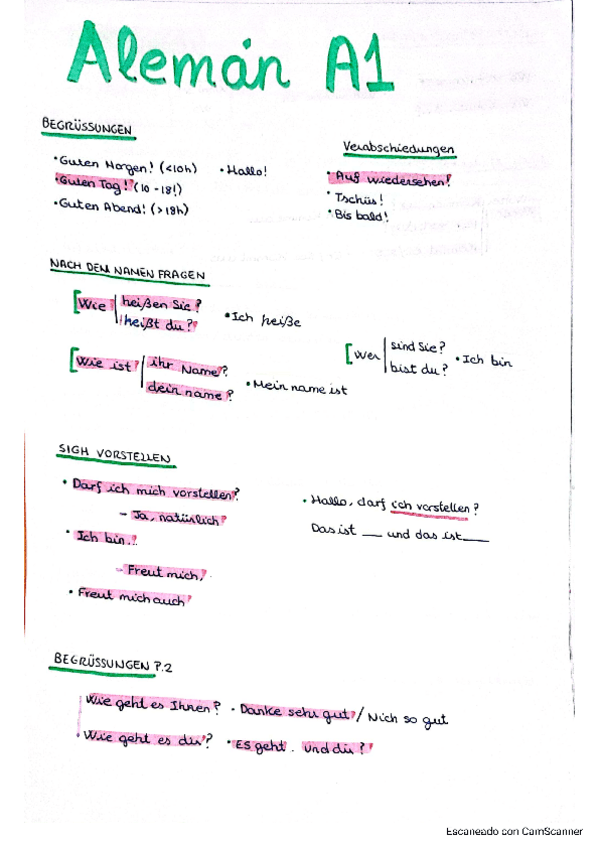 Alemán A1
BEGRÜSSUNGEN
• Guten Morgen! (<10h) • Hallo!
• Guten Tag! (10 - 18!)
• Guten Abend! (>18h)
Verabschiedungen
• Auf wiedersehen!
• Tschüs!
• Bis bald!
NACH DEM NAMEN FRAGEN
Wie heißen Sie?
heißt du?
• Ich heiße
Wie ist ihr Name?
dein name?
• Mein name ist
Wer sind Sie?
bist du?
• Ich bin
SICH VORSTELLEN
• Darf ich mich vorstellen?
- Ja, natürlich
• Ich bin..
- Freut mich,
• Freut mich auch
• Hallo, darf ich vorstellen?
Das ist __ und das ist __
BEGRÜSSUNGEN P.2
Wie geht es Ihnen? • Danke sehr gut / Nich so gut
Wie geht es dir? • ES geht. Und dir?
Escaneado con CamScanner